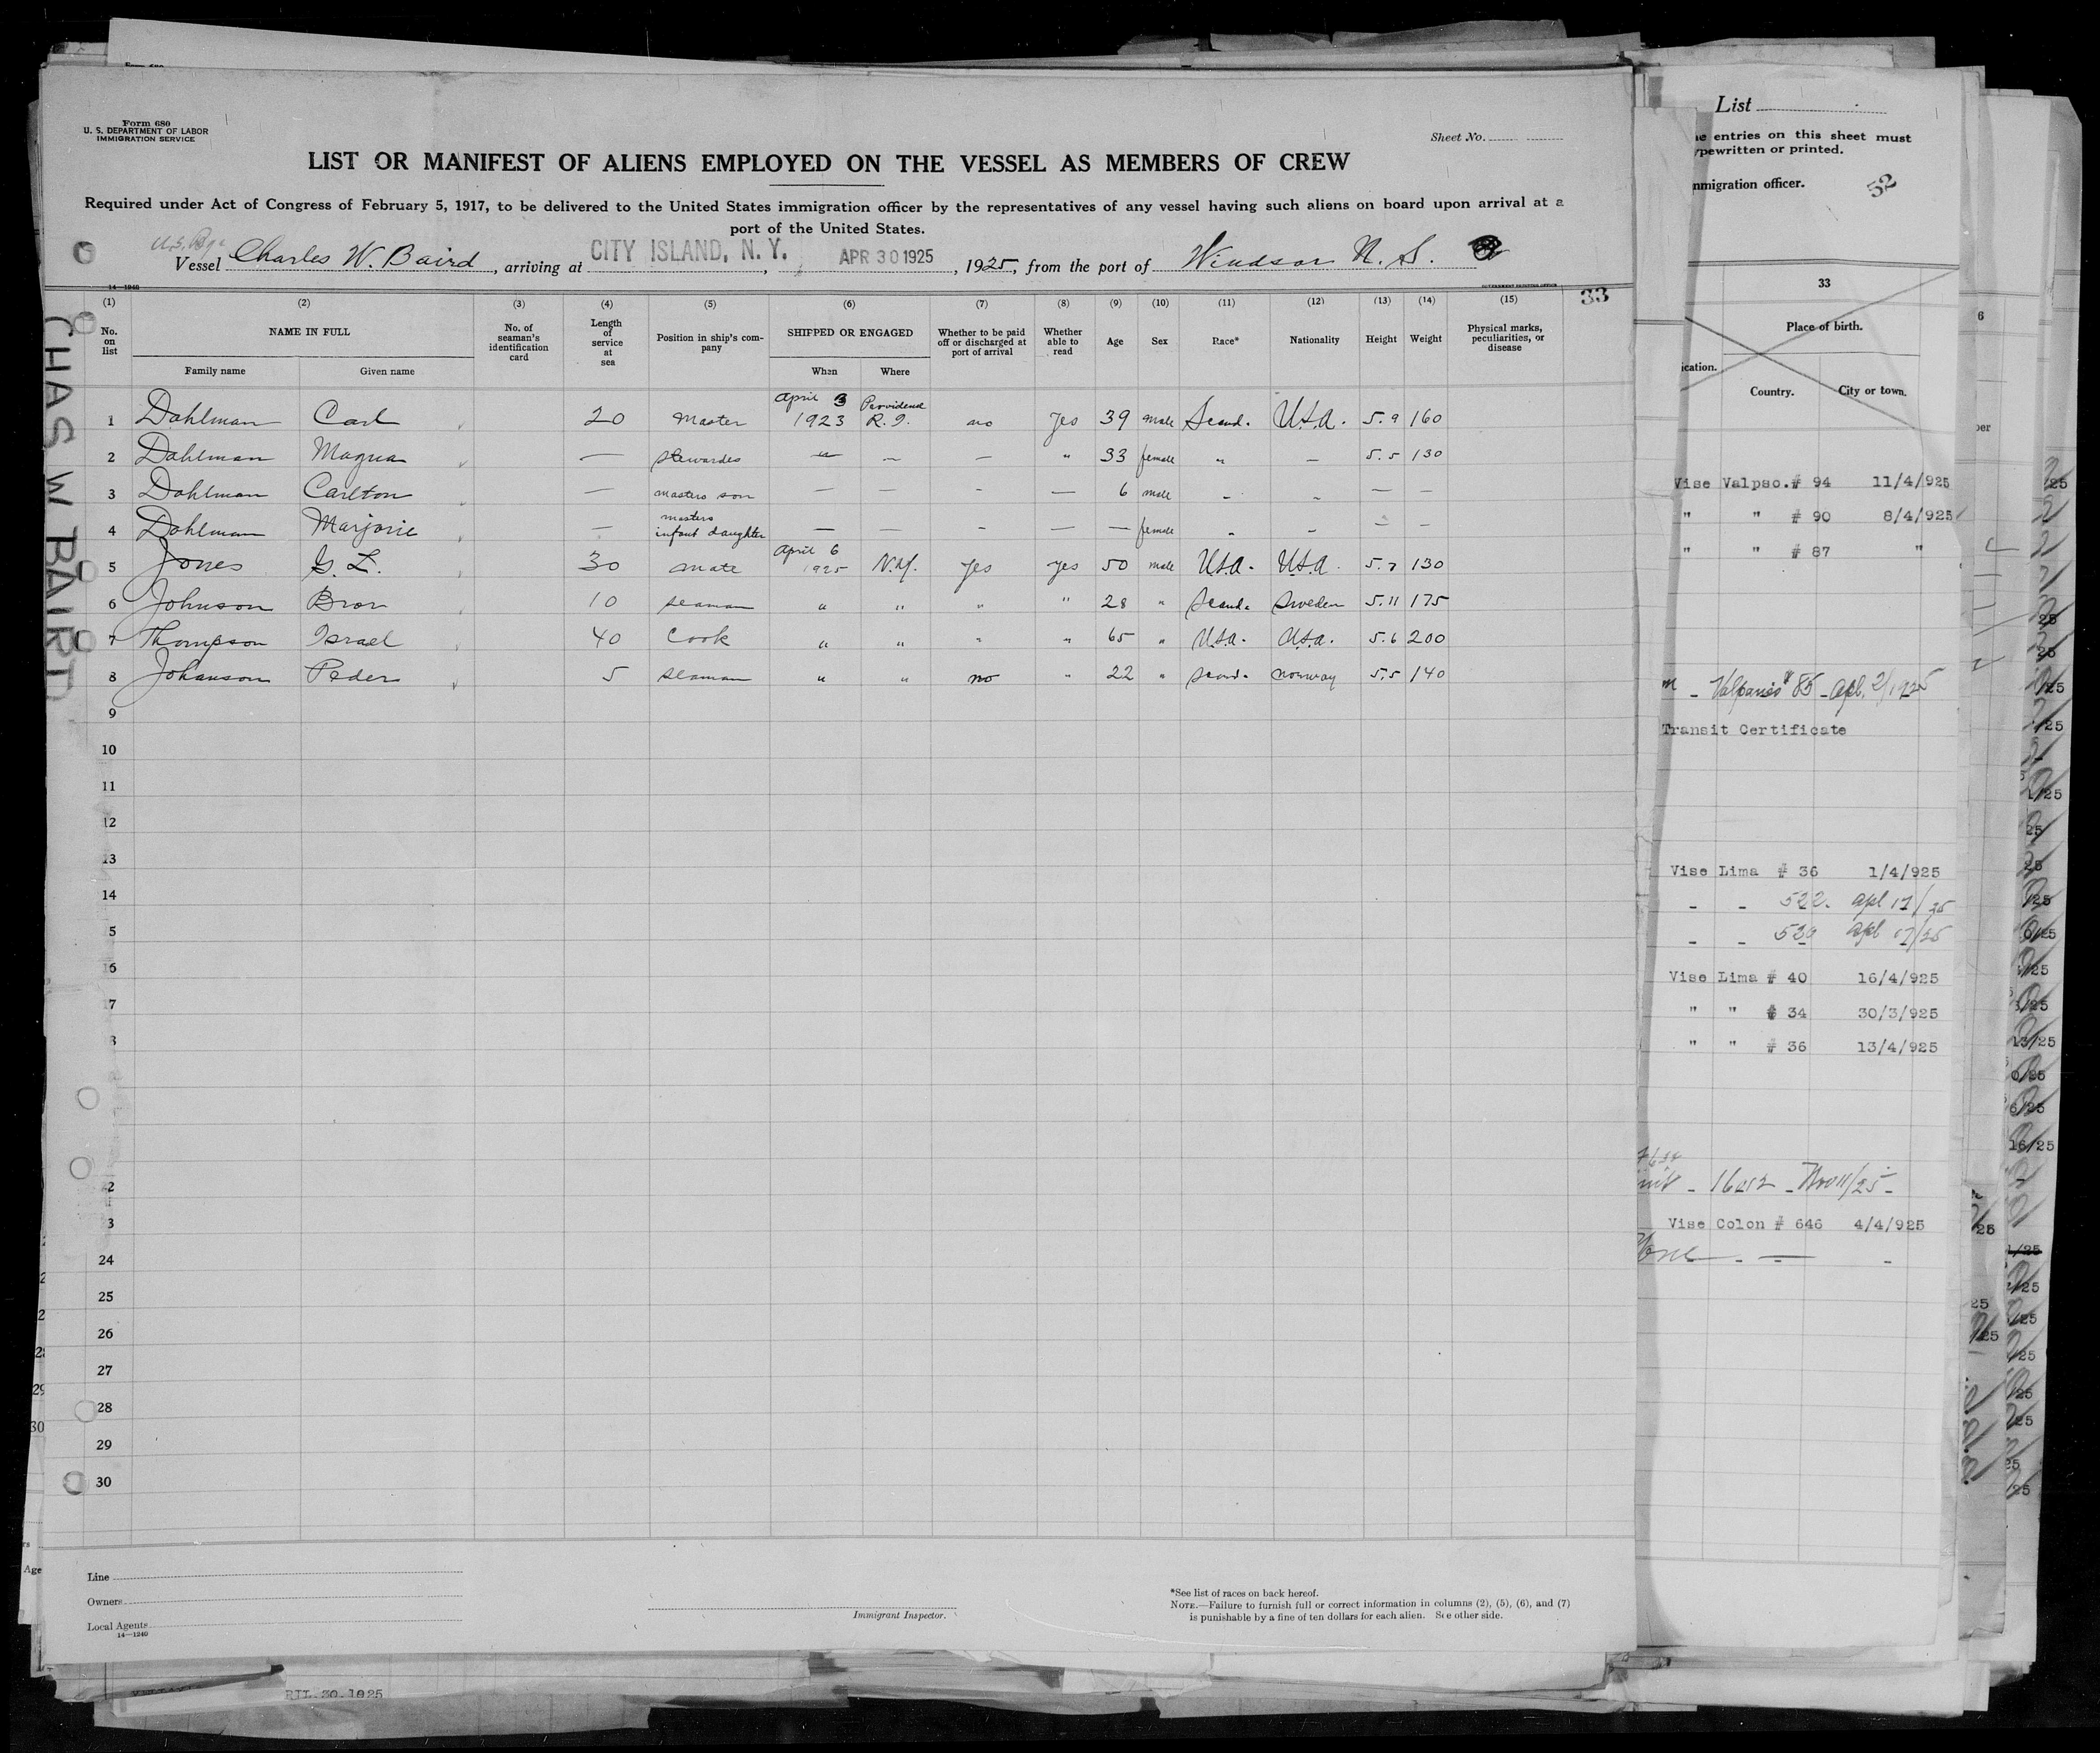 Form 680
U. S. DEPARTMENT OF LABOR
IMMIGRATION SERVICE
Sheet No.
LIST OR MANIFEST OF ALIENS EMPLOYED ON THE VESSEL AS MEMBERS OF CREW
Required under Act of Congress of February 5, 1917, to be delivered to the United States immigration officer by the representatives of any vessel having such aliens on board upon arrival at a
port of the United States.
Vessel Charles W. Baird, arriving at CITY ISLAND, N. Y., APR 30 1925, 1925, from the port of Windsor N. S.
14—1240
33
CHAS W BAIRD
(1) (2) (3) (4) (5) (6) (7) (8) (9) (10) (11) (12) (13) (14) (15)
No. on list NAME IN FULL No. of seaman's identification card Length of service at sea Position in ship's company SHIPPED OR ENGAGED Whether to be paid off or discharged at port of arrival Whether able to read Age Sex Race* Nationality Height Weight Physical marks, peculiarities, or disease
Family name Given name When Where
1 Dahlman Carl 20 Master April 3 1923 Providence R. I. no Yes 39 male Scand. U.S.A. 5.9 160
2 Dahlman Magna — stewardes " — — " 33 female " — 5.5 130
3 Dahlman Carlton — masters son — — - — 6 male " " — —
4 Dahlman Marjorie — masters infant daughter — — - — — female " " — —
5 Jones G. L. 30 mate April 6 1925 N.Y. Yes Yes 50 male U.S.A. U.S.A. 5.7 130
6 Johnson Bror 10 seaman " " " " 28 " Scand. Sweden 5.11 175
7 Thompson Israel 40 Cook " " " " 65 " U.S.A. U.S.A. 5.6 200
8 Johanson Peder 5 seaman " " no " 22 " Scand. Norway 5.5 140
9
10
11
12
13
14
5
16
7
8
2
3
24
25
26
27
28
29
30
Line
Owners
Local Agents
14—1240
Immigrant Inspector.
*See list of races on back hereof.
NOTE.—Failure to furnish full or correct information in columns (2), (5), (6), and (7)
is punishable by a fine of ten dollars for each alien. See other side.
List
entries on this sheet must
ypewritten or printed.
nmigration officer.
52
33
Place of birth.
ication.
Country. City or town.
Vise Valpso. # 94 11/4/925
" " # 90 8/4/925
" " # 87 "
Transit Certificate
Vise Lima # 36 1/4/925
- - 522. apl 17/25
- - 520 apl 17/25
Vise Lima # 40 16/4/925
" " # 34 30/3/925
" " # 36 13/4/925
Vise Colon # 646 4/4/925
RIL 30.1925